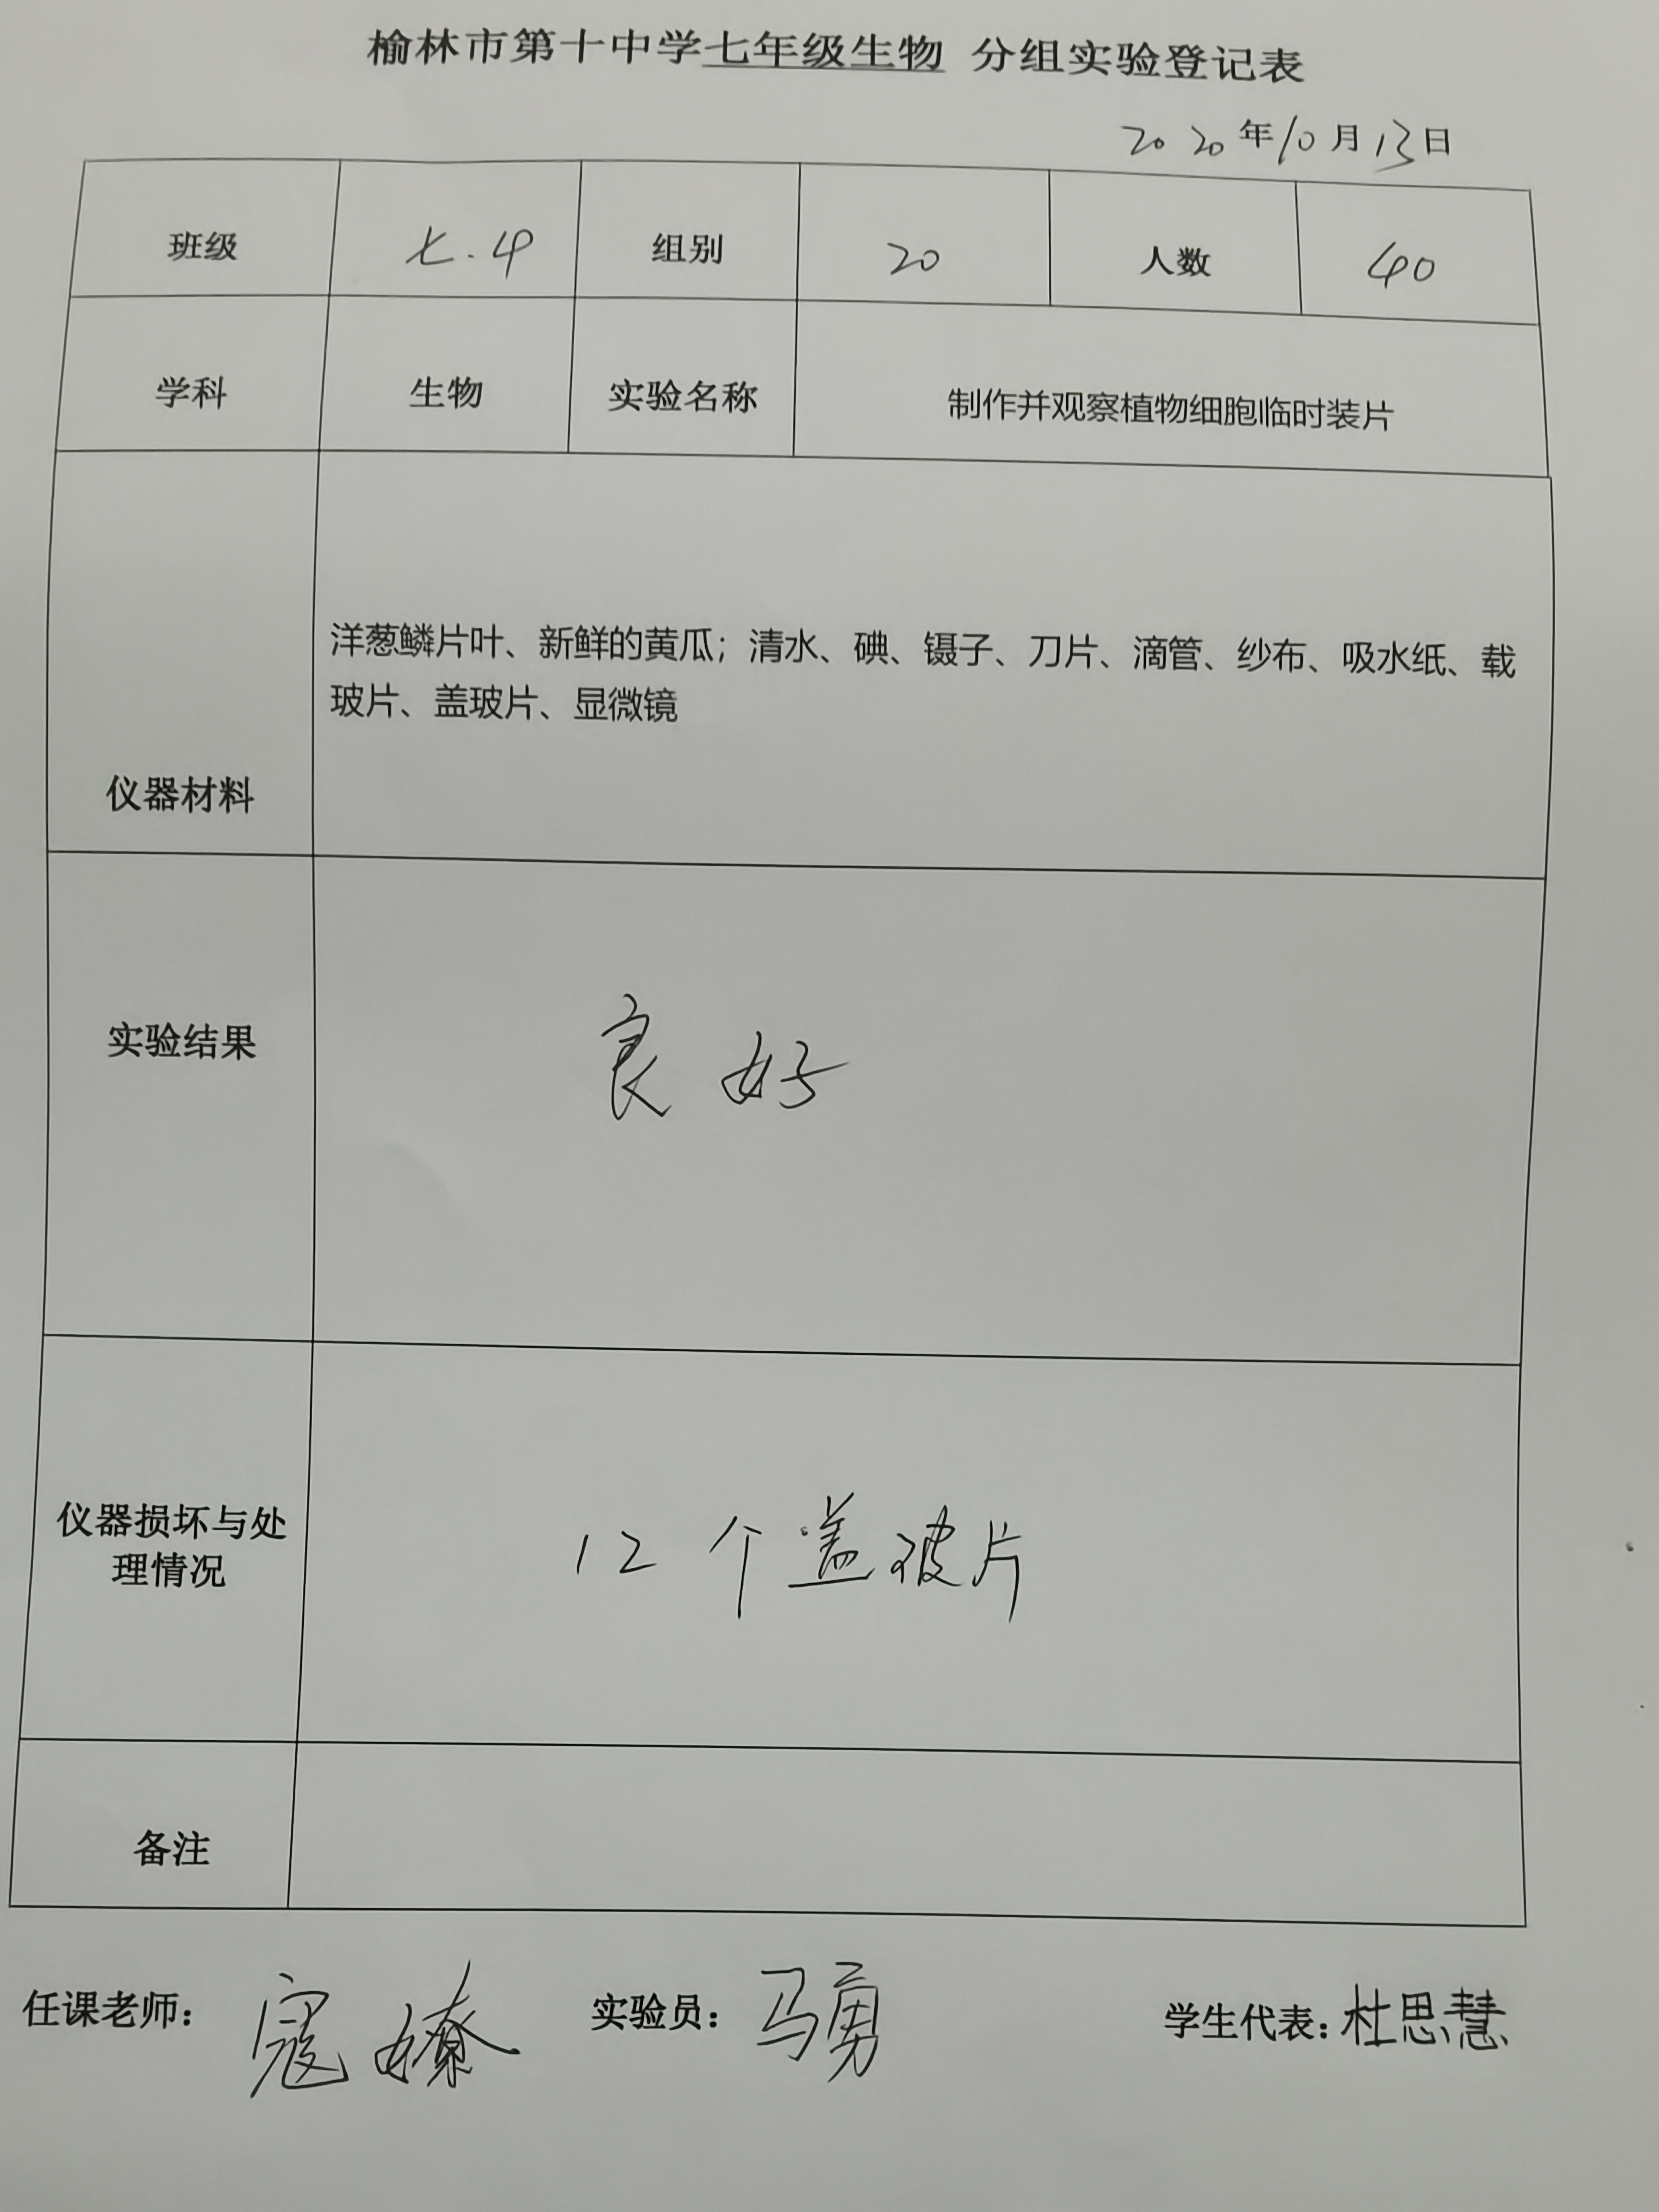 榆林市第十中学七年级生物 分组实验登记表
2020年10月13日
班级 七.4 组别 20 人数 40
学科 生物 实验名称 制作并观察植物细胞临时装片
洋葱鳞片叶、新鲜的黄瓜；清水、碘、镊子、刀片、滴管、纱布、吸水纸、载
玻片、盖玻片、显微镜
仪器材料
实验结果 良好
仪器损坏与处
理情况
12个盖玻片
备注
任课老师： 寇嫽 实验员： 马勇 学生代表：杜思慧